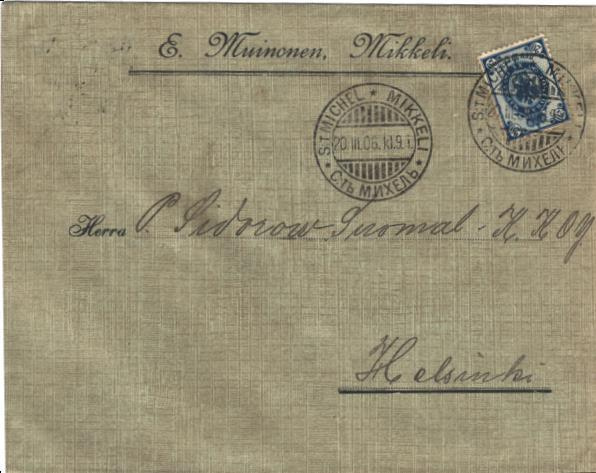 E. Muinonen, Mikkeli.
S:T MICHEL * MIKKELI * С.ТЪ МИХЕЛЬ *
20.III.06. kl.9.i.
S:T MICHEL * MIKKELI * С.ТЪ МИХЕЛЬ *
Herra P. Sidorow Suomal - K. K Oy
Helsinki